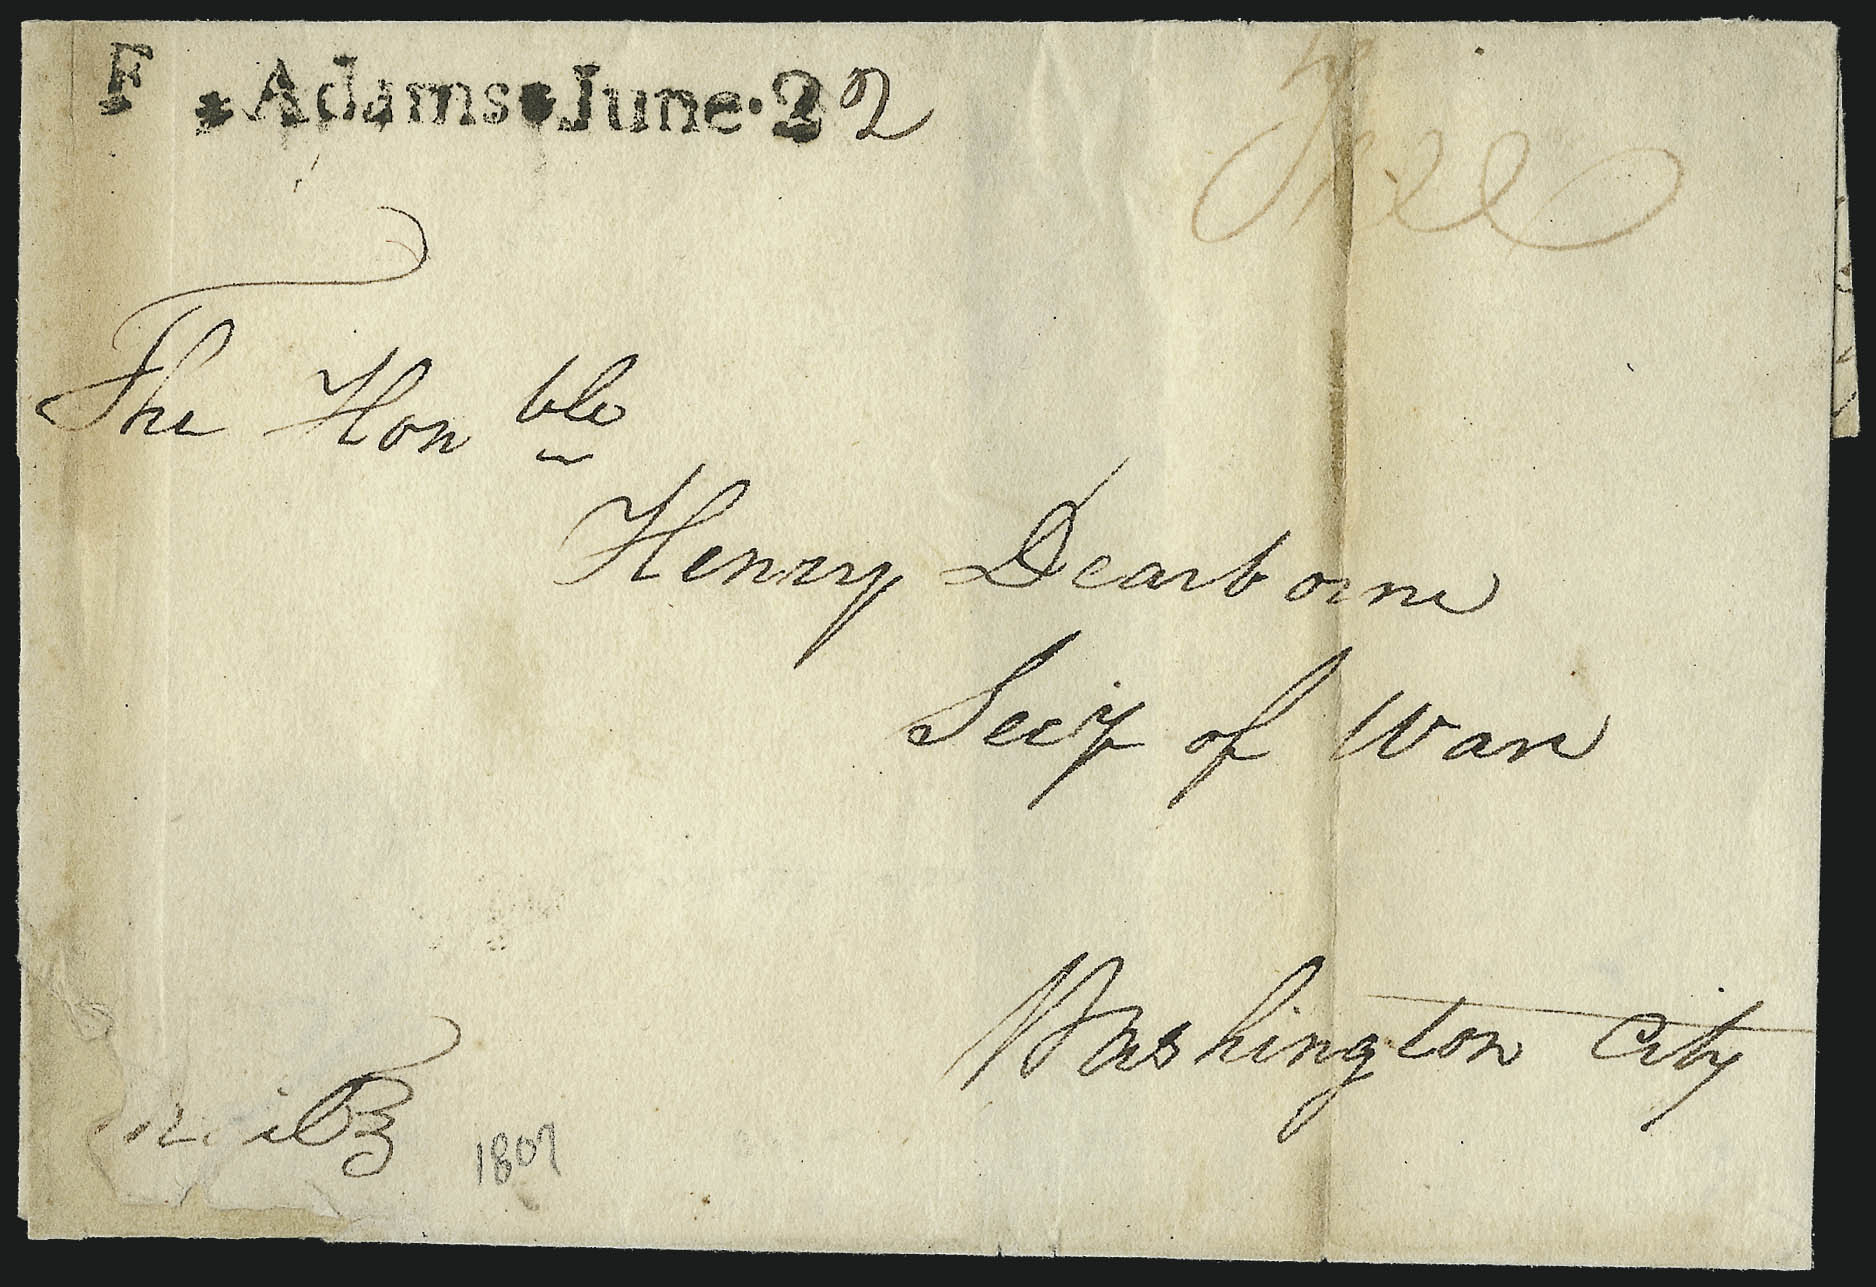 F * Adams * June · 2 2
Free
The Honble
Henry Dearborne
Secy of War
Washington City
1807